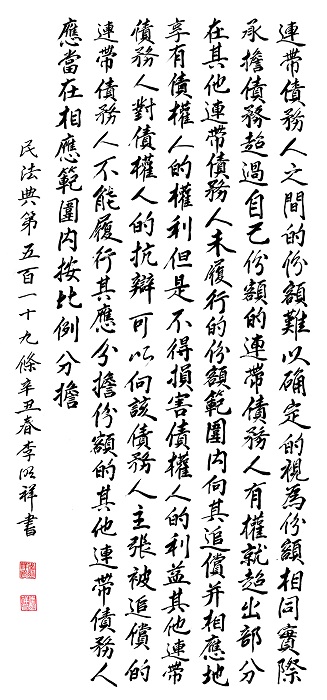 連帶債務人之間的份額難以确定的視為份額相同實際
承擔債務超過自己份額的連帶債務人有權就超出部分
在其他連帶債務人未履行的份額範圍内向其追償并相應地
享有債權人的權利但是不得損害債權人的利益其他連帶
債務人對債權人的抗辯可以向該債務人主張被追償的
連帶債務人不能履行其應分擔份額的其他連帶債務人
應當在相應範圍内按比例分擔
民法典第五百一十九條辛丑春李明祥書